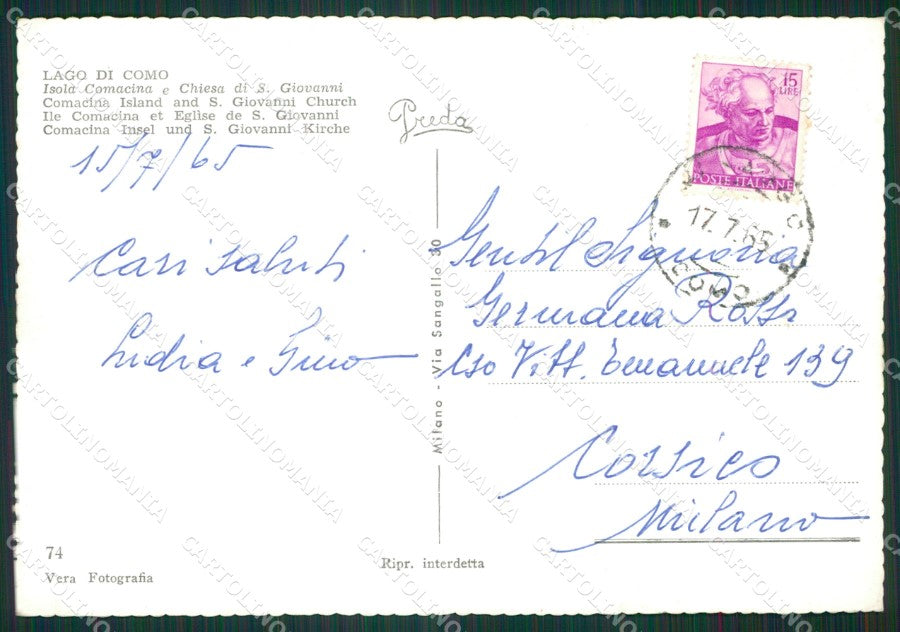 LAGO DI COMO
Isola Comacina e Chiesa di S. Giovanni
Comacina Island and S. Giovanni Church
Ile Comacina et Eglise de S. Giovanni
Comacina Insel und S. Giovanni Kirche
Preda
15/7/65
Cari saluti
Lidia e Gino
15
LIRE
POSTE ITALIANE
17.7.65
COMO
Gentil Signora
Germana Rossi
C.so Vitt. Emanuele 139
Corsico
Milano
Milano - Via Sangallo 30
74
Vera Fotografia
Ripr. interdetta
CARTOLINOMANIA